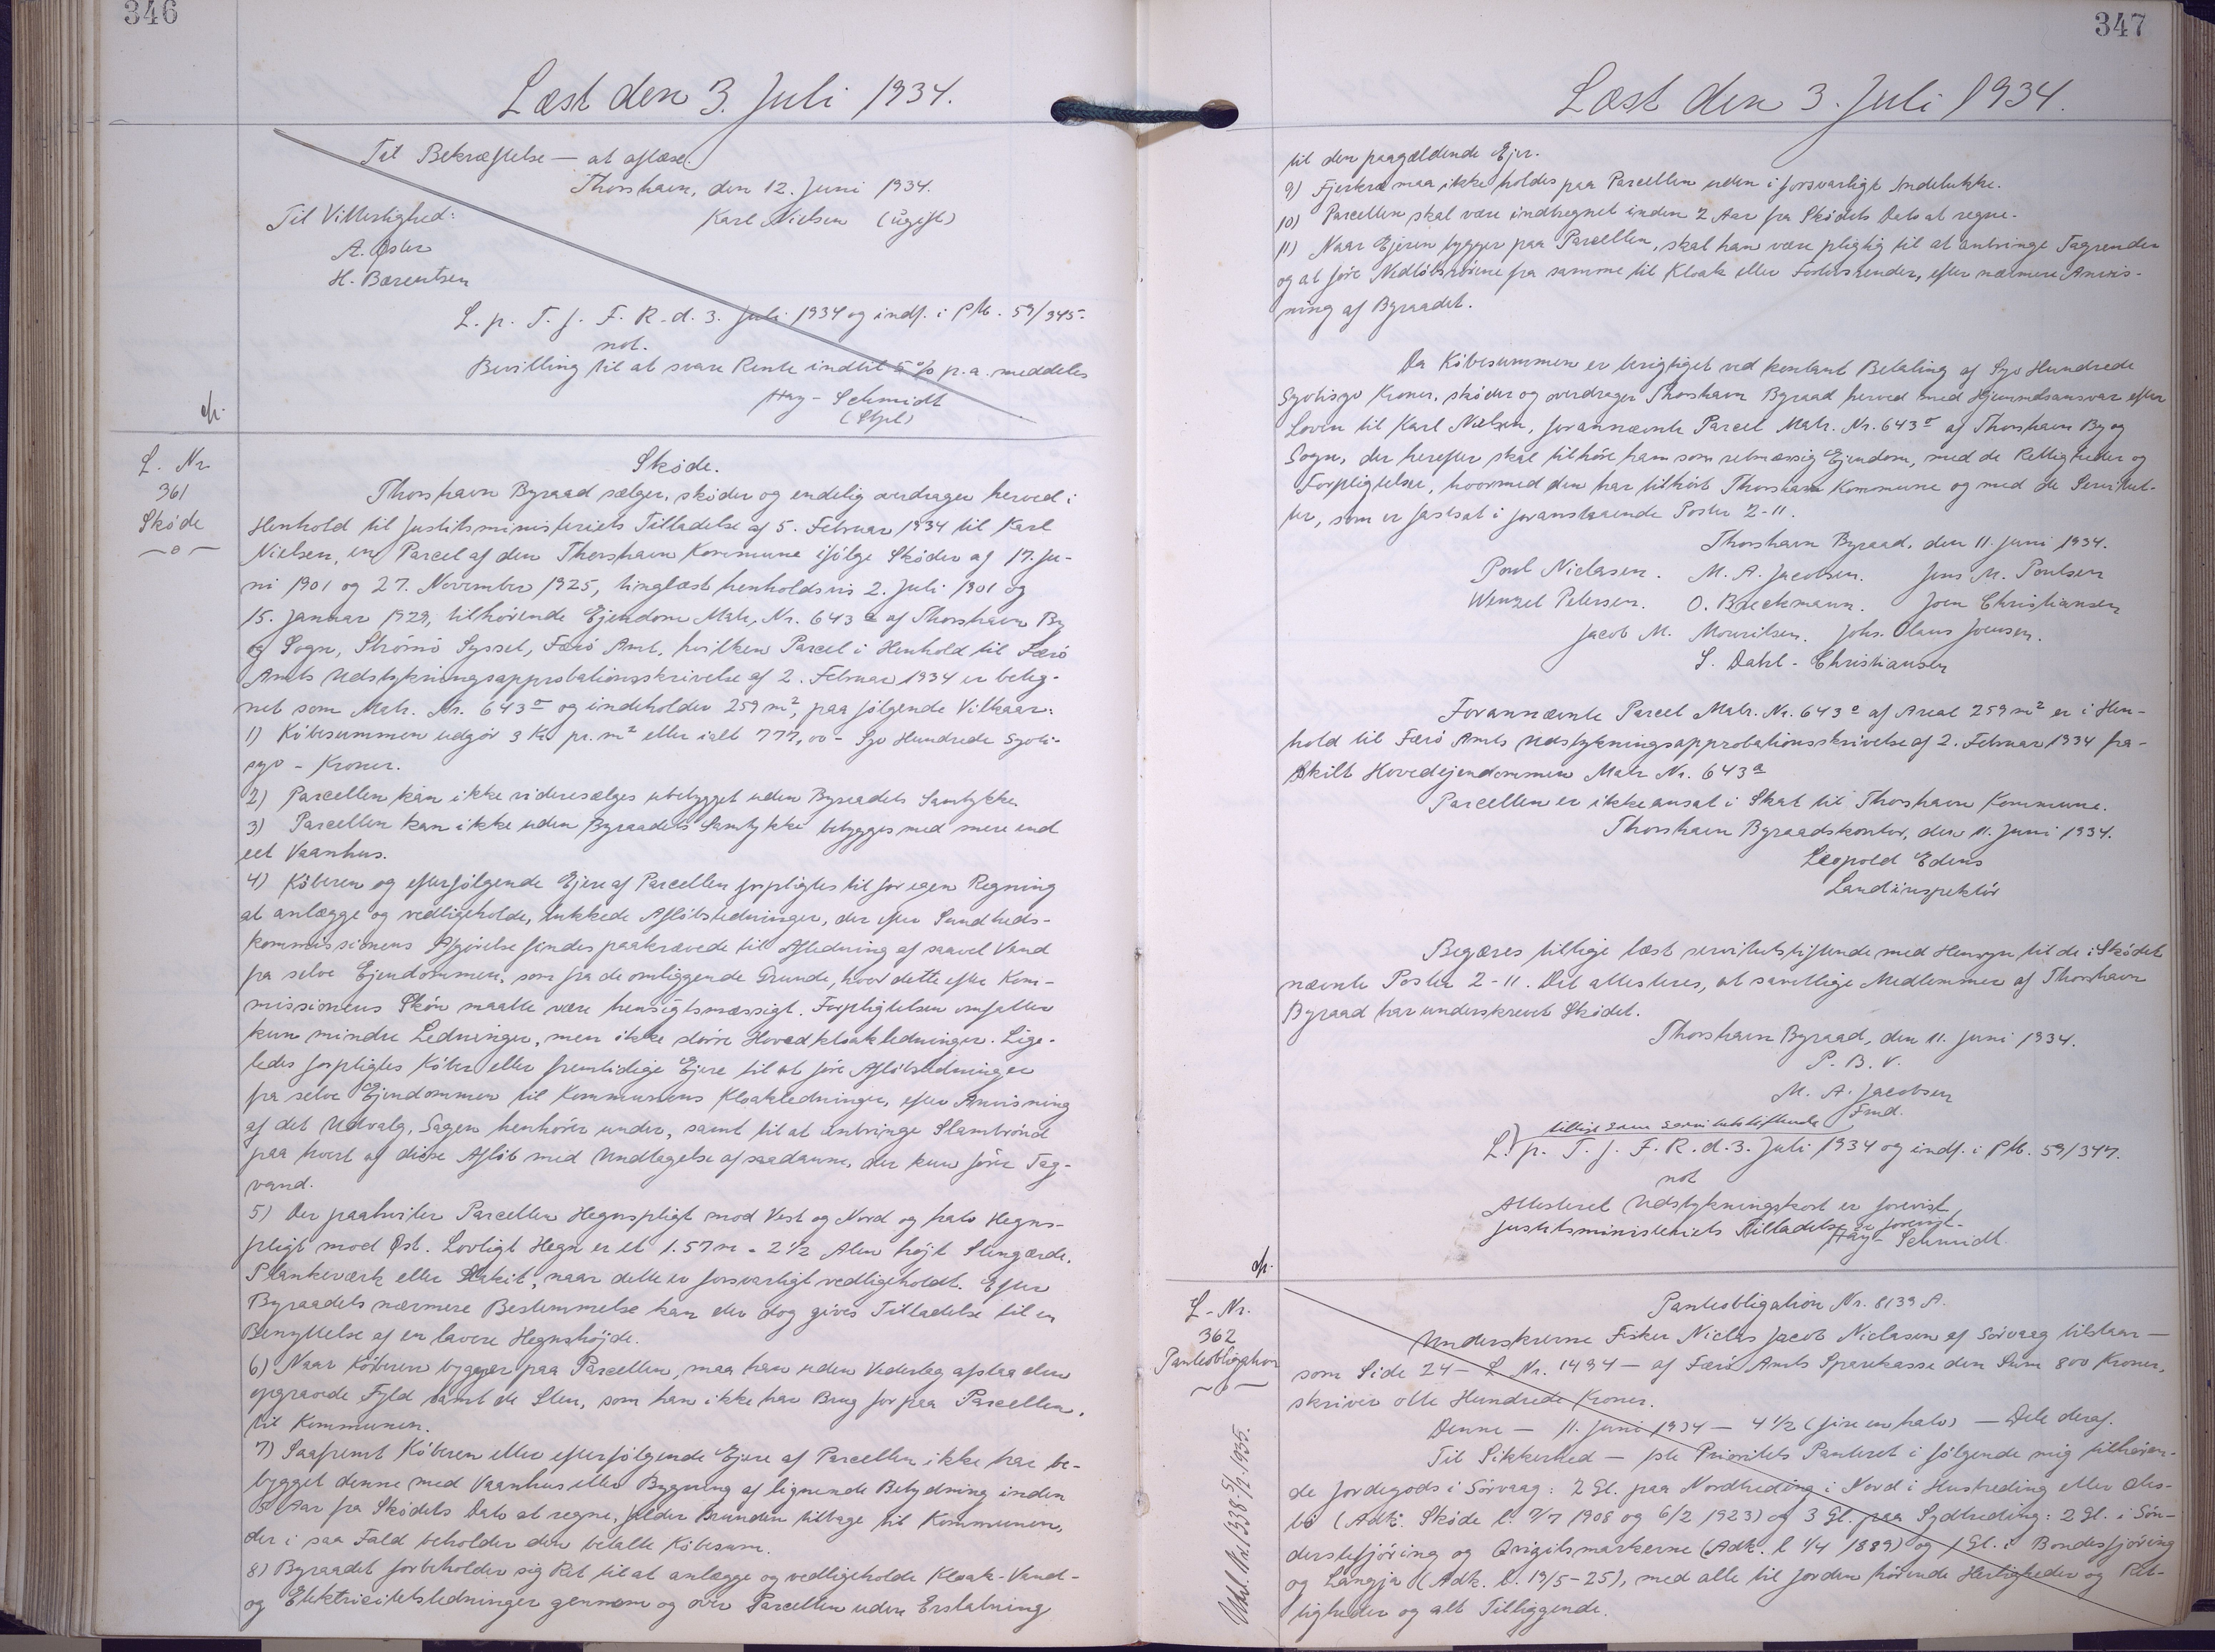 346
Læst den 3. Juli 1934.
Til Bekræftelse — at aflæse.
Thorshavn, den 12. Juni 1934.
Til Vitterlighed: Karl Nielsen (ugift)
A. Øster
H. Barentsen
L. p. T. f. F. R. d. 3. Juli 1934 og indf. i PM. 59/345.
not.
Bevilling til at svare Rente indtil 5% p.a. meddeles
Hay-Schmidt
(Stpl)
cfr.
L. Nr.
361
Sköde
Sköde.
Thorshavn Byraad sælger, sköder og endelig overdrager herved i
Henhold til Justitsministeriets Tilladelse af 5. Februar 1934 til Karl
Nielsen, en Parcel af den Thorshavn Kommune ifölge Sköder af 17. Ju-
ni 1901 og 27. November 1925, tinglæst henholdsvis 2. Juli 1901 og
15. Januar 1929, tilhörende Ejendom Matr. Nr. 643a af Thorshavn By
og Sogn, Strömö Syssel, Færö Amt, hvilken Parcel i Henhold til Færö
Amts Udstykningsapprobationsskrivelse af 2. Februar 1934 er beteg-
net som Matr. Nr. 643o og indeholder 259 m², paa fölgende Vilkaar:
1) Köbesummen udgör 3 Kr. pr. m² eller ialt 777,00 - Syv Hundrede Syvti-
syv - Kroner.
2) Parcellen kan ikke videresælges ubebygget uden Byraadets Samtykke.
3) Parcellen kan ikke uden Byraadets Samtykke bebygges med mere end
eet Vaanhus.
4) Köberen og efterfölgende Ejere af Parcellen forpligtes til for egen Regning
at anlægge og vedligeholde, lukkede Aflöbsledninger, der efter Sundheds-
kommissionens Afgörelse findes paakrævede til Afledning af saavel Vand
fra selve Ejendommen, som fra de omliggende Grunde, hvor dette efter Kom-
missionens Skön maatte være hensigtsmæssigt. Forpligtelsen omfatter
kun mindre Ledninger, men ikke större Hovedkloakledninger. Lige-
ledes forpligtes Köber eller fremtidige Ejere til at före Aflöbsledninger
fra selve Ejendommen til Kommunens Kloakledninger, efter Anvisning
af det Udvalg, Sagen henhörer under, samt til at anbringe Slambrönd
paa hvert af disse Aflöb med Undtagelse af saadanne, der kun förer Tag-
vand.
5) Der paahviler Parcellen Hegnspligt mod Vest og Nord og halv Hegns-
pligt mod Öst. Lovligt Hegn er et 1.57 m = 2½ Alen højt Stengærde,
Plankeværk eller Stakit, naar dette er forsvarligt vedligeholdt. Efter
Byraadets nærmere Bestemmelse kan der dog gives Tilladelse til en
Benyttelse af en lavere Hegnshöjde.
6) Naar Köberen bygger paa Parcellen, maa han uden Vederlag afstaa den
opgravede Fyld samt de Sten, som han ikke har Brug for paa Parcellen,
til Kommunen.
7) Saafremt Köberen eller efterfölgende Ejere af Parcellen ikke har be-
bygget denne med Vaanhus eller Bygning af lignende Betydning inden
5 Aar fra Sködets Dato at regne, falder Grunden tilbage til Kommunen,
der i saa Fald beholder den betalte Köbesum.
8) Byraadet forbeholder sig Ret til at anlægge og vedligeholde Kloak- Vand-
og Elektricitetsledninger gennem og over Parcellen uden Erstatning
347
Læst den 3. Juli 1934.
til den paagældende Ejer.
9) Fjerkræ maa ikke holdes paa Parcellen uden i forsvarligt Indelukke.
10) Parcellen skal være indhegnet inden 2 Aar fra Sködets Dato at regne.
11) Naar Ejeren bygger paa Parcellen, skal han være pligtig til at anbringe Tagrender
og at före Nedlöbsrörene fra samme til Kloak eller Fortovsrender, efter nærmere Anvis-
ning af Byraadet.
Da Köbesummen er berigtiget ved kontant Betaling af Syv Hundrede
Syvtisyv Kroner, sköder og overdrager Thorshavn Byraad herved med Hjemmelsansvar efter
Loven til Karl Nielsen, forannævnte Parcel Matr. Nr. 643o af Thorshavn By og
Sogn, der herefter skal tilhöre ham som retmæssig Ejendom, med de Rettigheder og
Forpligtelser, hvormed den har tilhört Thorshavn Kommune og med de Servitut-
ter, som er fastsat i foranstaaende Poster 2-11.
Thorshavn Byraad, den 11. Juni 1934.
Poul Niclasen. M. A. Jacobsen. Jens M. Poulsen
Wenzel Petersen. O. Breckmann. Joen Christiansen
Jacob M. Mouritsen. Johs. Olaus Joensen.
S. Dahl-Christiansen
Forannævnte Parcel Matr. Nr. 643o af Areal 259 m² er i Hen-
hold til Færö Amts Udstykningsapprobationsskrivelse af 2. Februar 1934 fra-
skilt Hovedejendommen Matr. Nr. 643a
Parcellen er ikke ansat i Skat til Thorshavn Kommune.
Thorshavn Byraadskontor, den 11. Juni 1934.
Leopold Edens
Landinspektör
Begæres tillige læst servitutstiftende med Hensyn til de i Sködet
nævnte Poster 2-11. Det attesteres, at samtlige Medlemmer af Thorshavn
Byraad har underskrevet Sködet.
Thorshavn Byraad, den 11. Juni 1934.
P. B. V.
M. A. Jacobsen
Fmd.
tillige som servitutstiftende
L. p. T. f. F. R. d. 3. Juli 1934 og indf. i PM. 59/347.
not
Attesteret Udstykningskort er forevist
Justitsministeriets Tilladelse er forevist.
Hay-Schmidt
cfr.
L-Nr.
362
Panteobligation
Panteobligation Nr. 8139 A.
Underskrevne Fisker Niclas Jacob Niclasen af Sörvaag tilstaar —
som Side 24 - L Nr. 1494 - af Færö Amts Sparekasse den Sum 800 Kroner,
skriver otte Hundrede Kroner.
Denne — 11. Juni 1934 — 4½ (fire en halv) — Dele deraf.
Til Sikkerhed — 1ste Prioritets Panteret i fölgende mig tilhören-
de Jordegods i Sörvaag: 2 Gl. paa Nordheding i Nord i Husheding eller
(Adk. Sköde l. 2/7 1908 og 6/2 1923) og 3 Gl. paa Sydheding: 2 Gl. i Sön-
og (Adk. l 1/4 1889) og 1 Gl. i Bondesfjöring
og Langja (Adk. l. 19/5-25), med alle til Jorden hörende Herligheder og Ret-
tigheder og alt Tilliggende.
Udsl. Nr. 1338 5/9.1935.